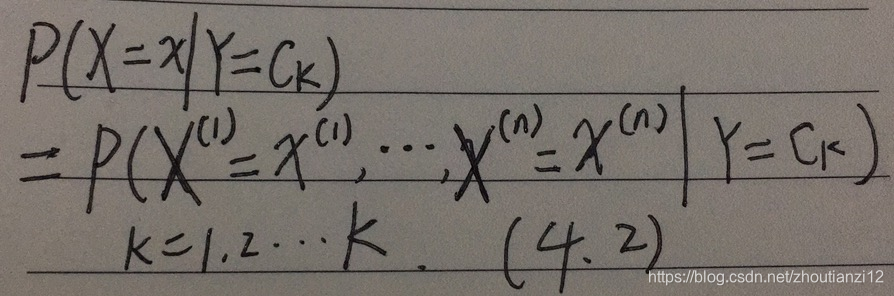 P(X=x|Y=Cₖ)
=P(X⁽¹⁾=x⁽¹⁾,···,X⁽ⁿ⁾=x⁽ⁿ⁾|Y=Cₖ)
k=1,2···k. (4.2)
https://blog.csdn.net/zhoutianzi12